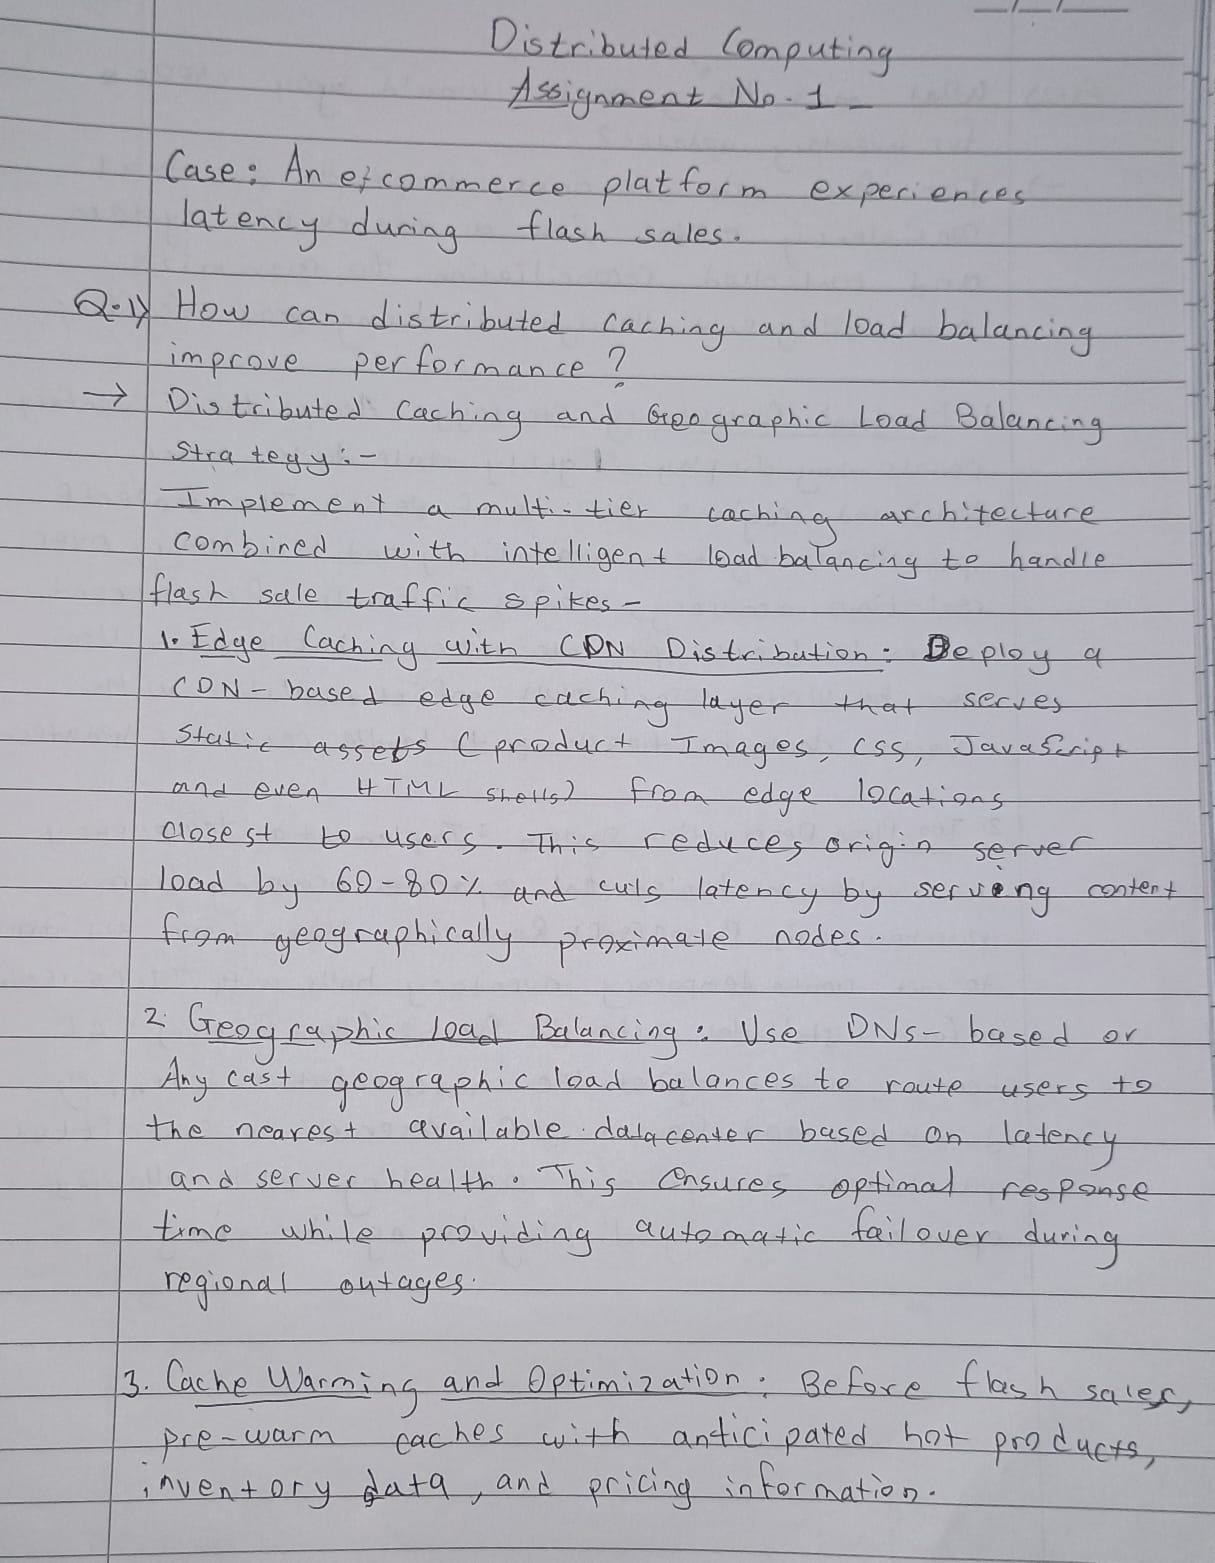 Distributed Computing
Assignment No. 1 -
Case: An e-commerce platform experiences
latency during flash sales.
Q.1) How can distributed caching and load balancing
improve performance?
→ Distributed Caching and Geographic Load Balancing
Strategy:-
Implement a multi-tier caching architecture
combined with intelligent load balancing to handle
flash sale traffic spikes-
1. Edge Caching with CDN Distribution: Deploy a
CDN-based edge caching layer that serves
Static assets (product Images, CSS, JavaScript
and even HTML shells) from edge locations
closest to users. This reduces origin server
load by 60-80% and cuts latency by serving content
from geographically proximate nodes.
2. Geographic load Balancing: Use DNS-based or
Any cast geographic load balances to route users to
the nearest available datacenter based on latency
and server health. This ensures optimal response
time while providing automatic failover during
regional outages.
3. Cache Warming and Optimization: Before flash sales,
pre-warm caches with anticipated hot products,
inventory data, and pricing information.